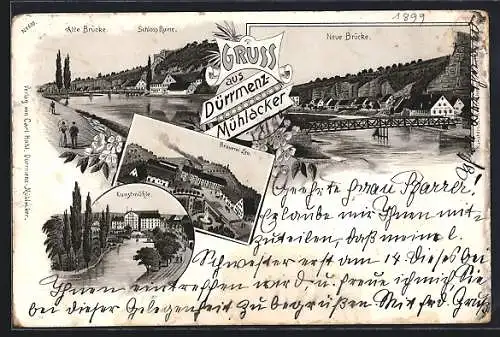 1899
No 618.
Alte Brücke.
Schloss Ruine.
Neue Brücke.
GRUSS
aus
Dürrmenz-
Mühlacker
Brauerei Leo.
Kunstmühle.
Verlag von Carl Händle, Dürrmenz-Mühlacker.
Geehrte Frau Pfarrer!
Erlaube mir Ihnen mit-
zuteilen, daß meine l.
Schwester erst am 14. dieses bei
Ihnen eintreffen wird u. freue ich mich Sie
bei dieser Gelegenheit zu begrüßen Mit frd. Gruß